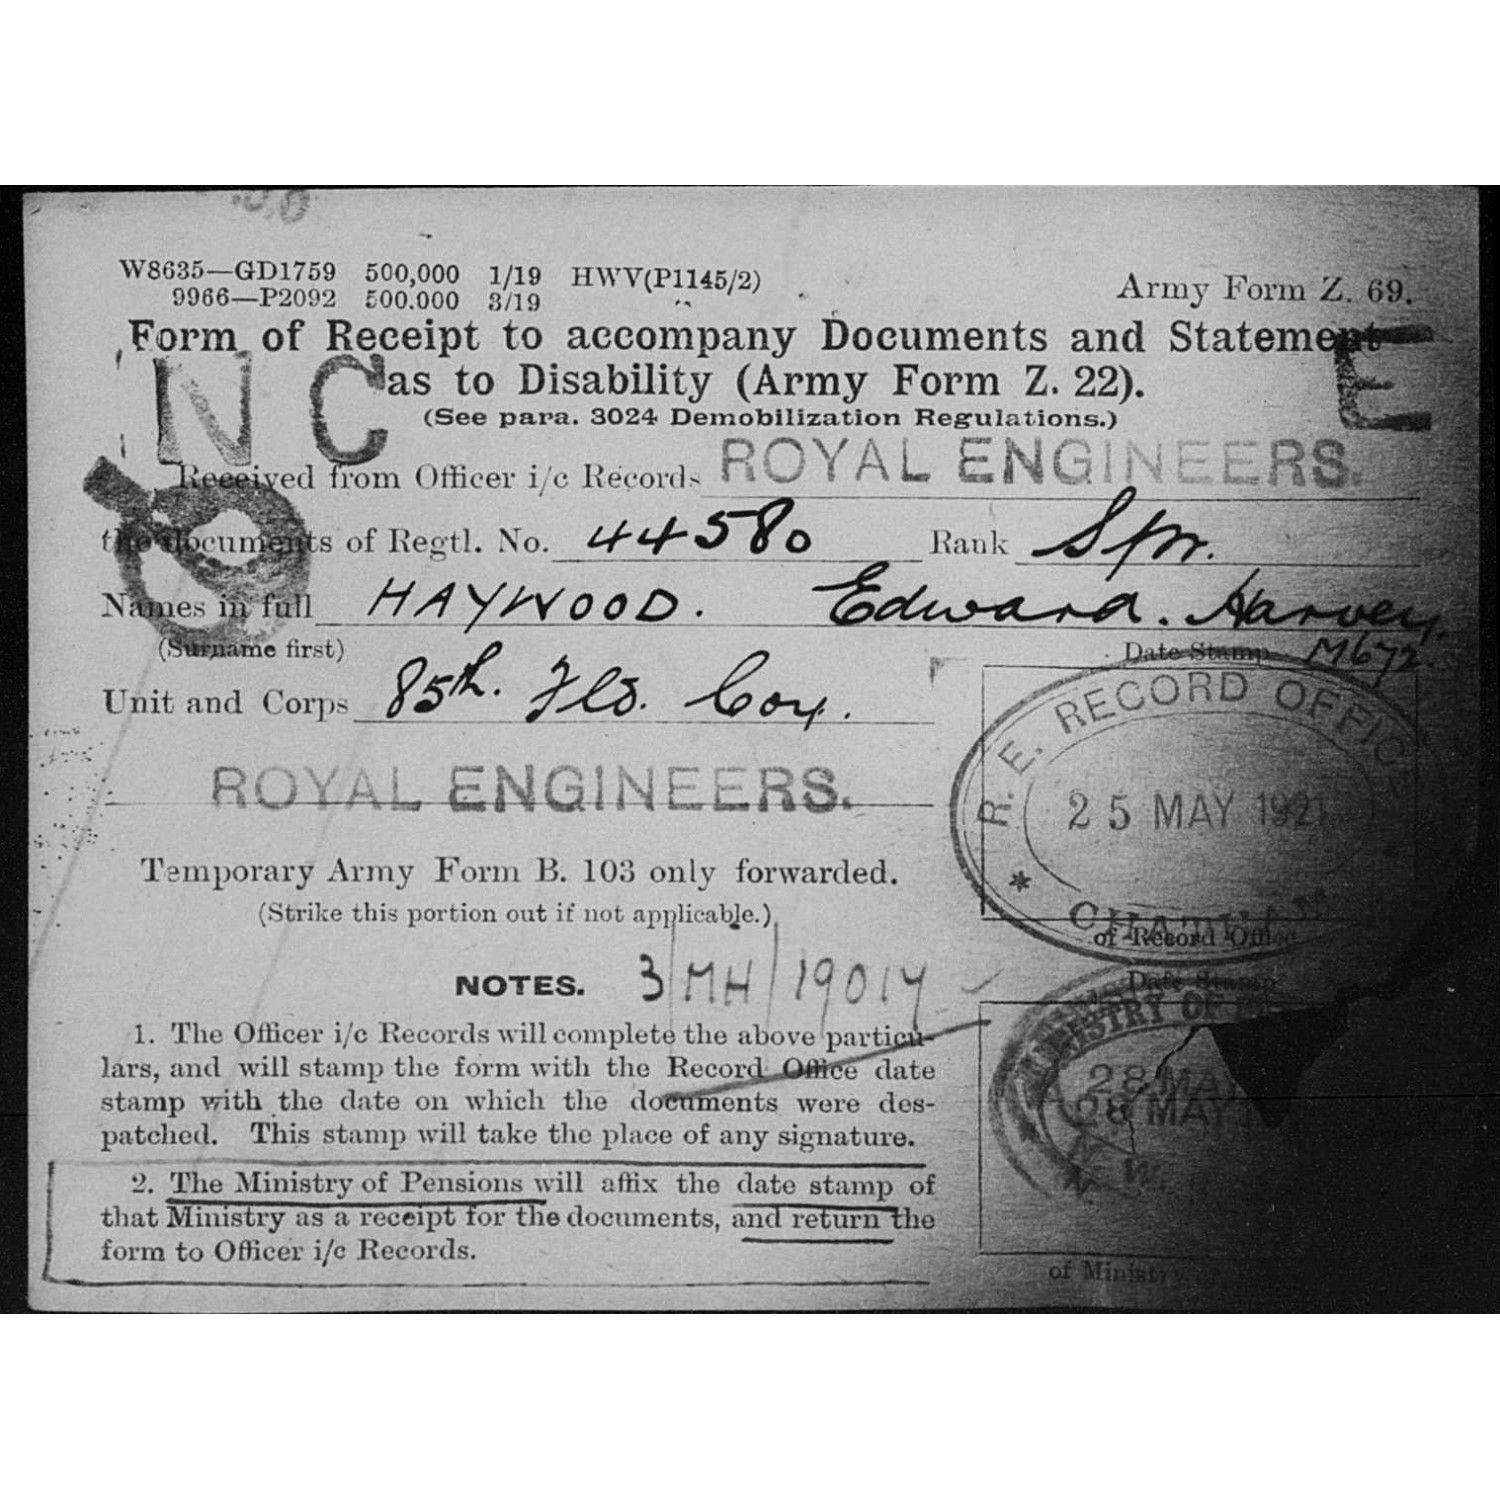 W8635—GD1759 500,000 1/19 HWV(P1145/2)
9966—P2092 500.000 3/19
Army Form Z. 69.
Form of Receipt to accompany Documents and Statement
as to Disability (Army Form Z. 22).
(See para. 3024 Demobilization Regulations.)
N C
E
Received from Officer i/c Records ROYAL ENGINEERS.
the documents of Regtl. No. 44580 Rank Spr.
Names in full HAYWOOD. Edward. Harvey.
(Surname first)
Date Stamp M672.
Unit and Corps 85th. Fld. Coy.
ROYAL ENGINEERS.
R. E. RECORD OFFICE
25 MAY 1921
* CHATHAM
of Record Office
Temporary Army Form B. 103 only forwarded.
(Strike this portion out if not applicable.)
NOTES. 3/MH/19014
1. The Officer i/c Records will complete the above particu-
lars, and will stamp the form with the Record Office date
stamp with the date on which the documents were des-
patched. This stamp will take the place of any signature.
2. The Ministry of Pensions will affix the date stamp of
that Ministry as a receipt for the documents, and return the
form to Officer i/c Records.
Date Stamp
MINISTRY OF
28 MA
28 MAY
N. W.
of Ministry